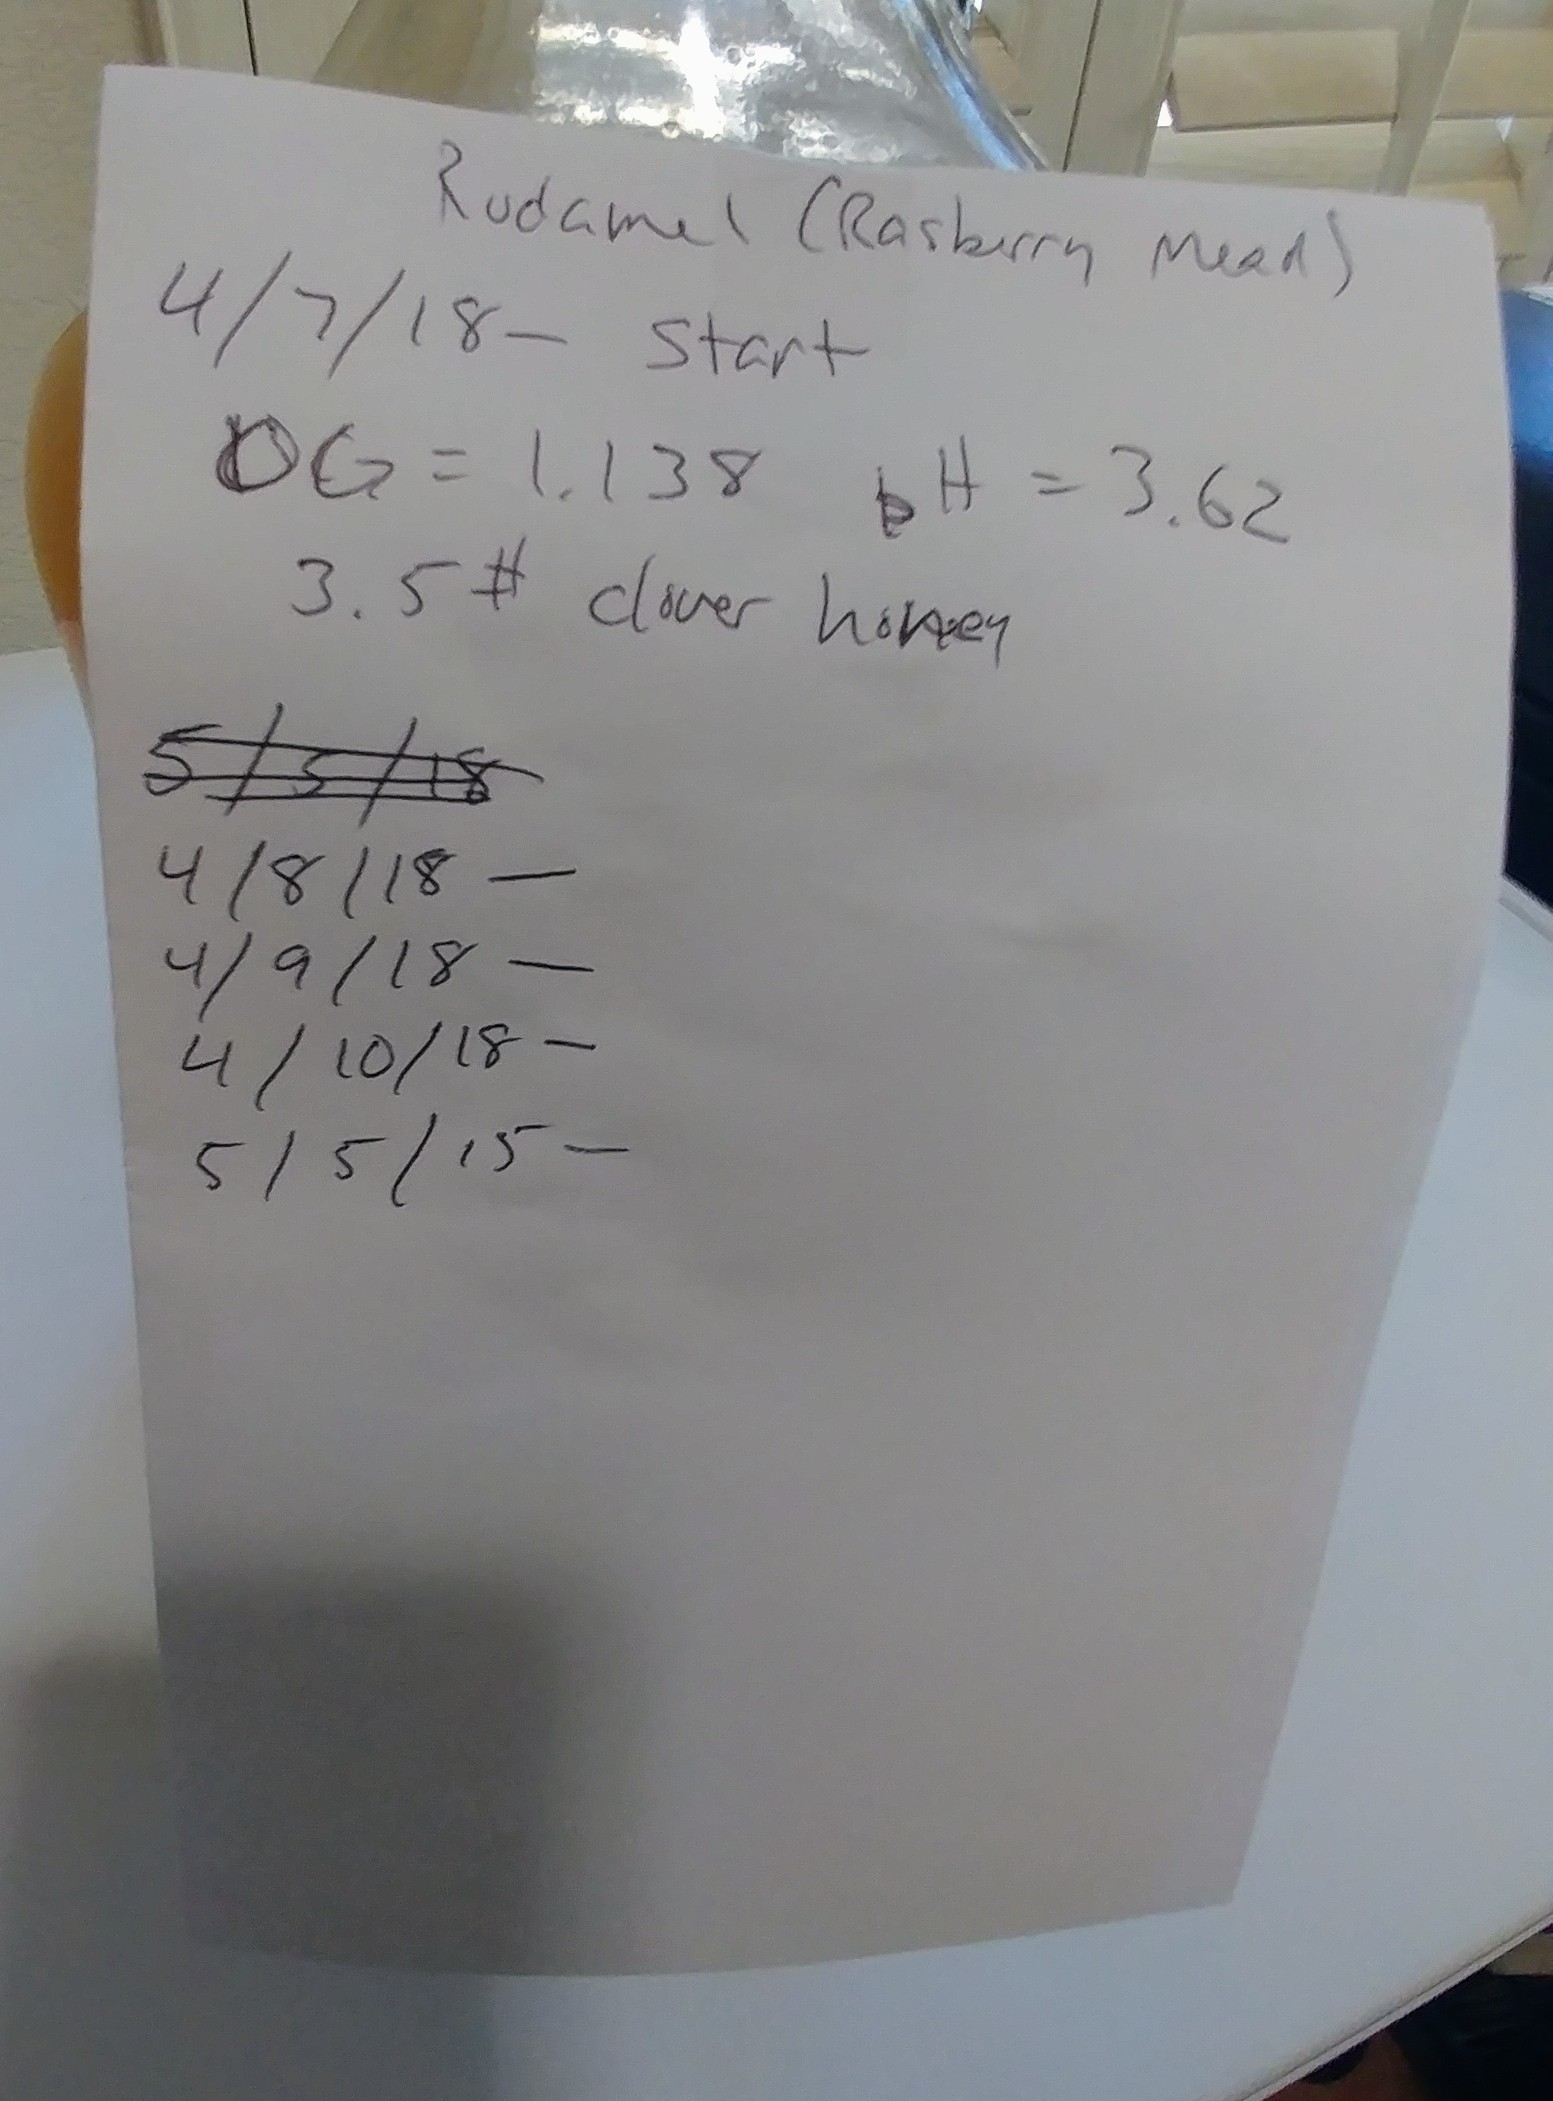 Rudamel (Rasberry Mead)
4/7/18 - Start
OG = 1.138 pH = 3.62
3.5 # clover honey
5/5/18
4/8/18 -
4/9/18 -
4/10/18 -
5/5/15 -